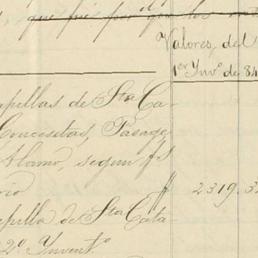 que fué por
Valores del
1er Invo de 84
apillas de Sta Ca-
Concesitas, Pasage
Alamo, segun fs
rio
2319.3
apilla de Sta Cata-
2o Inventо